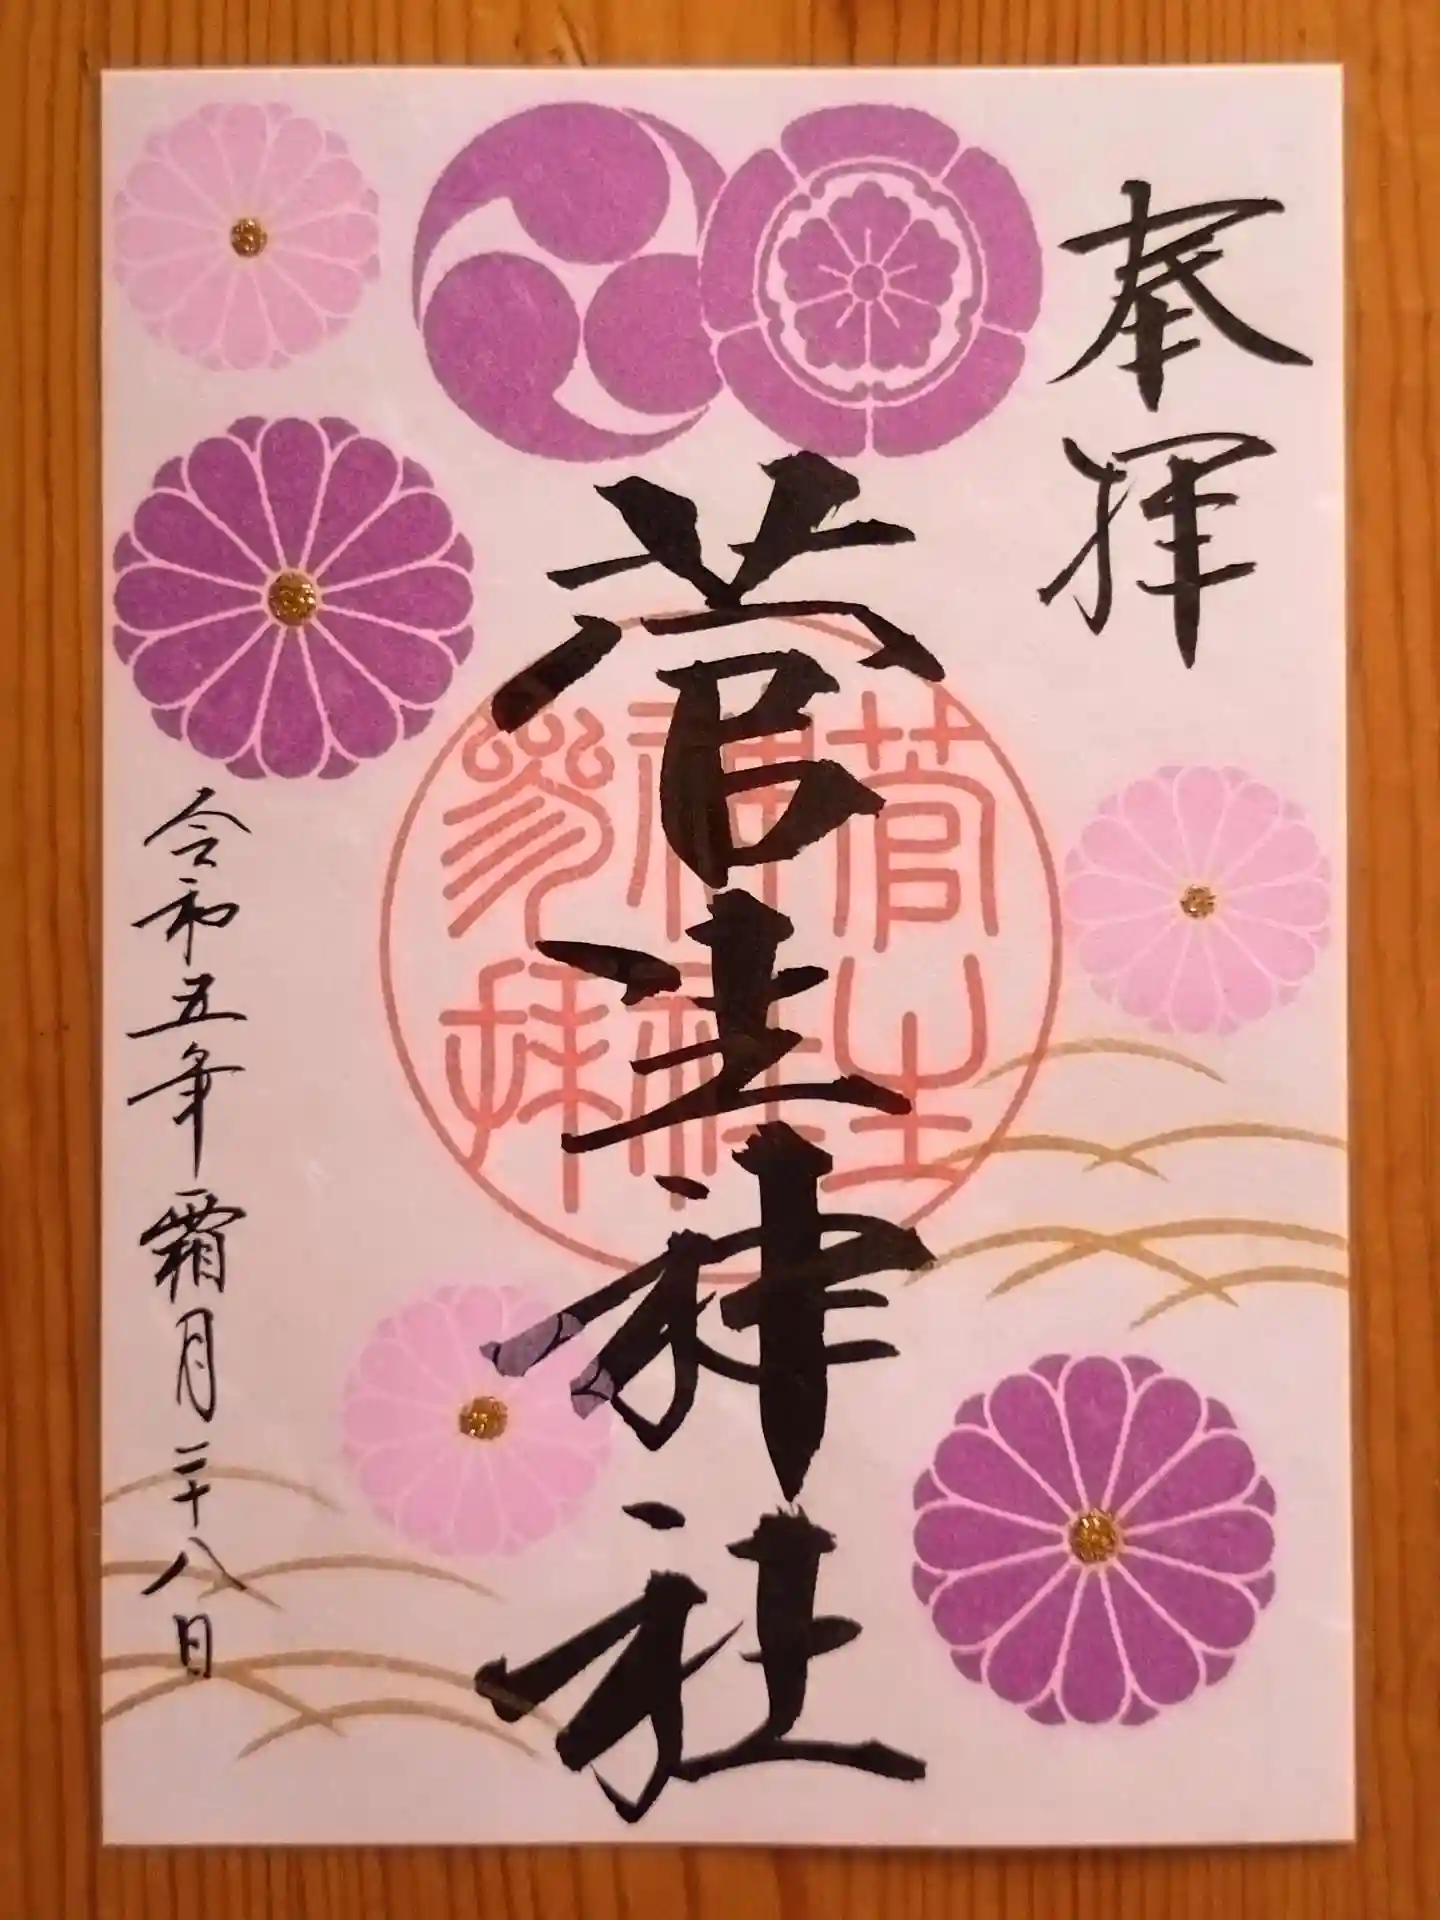 奉拝
菅生神社
菅生
神社
参拝
令和五年霜月二十八日